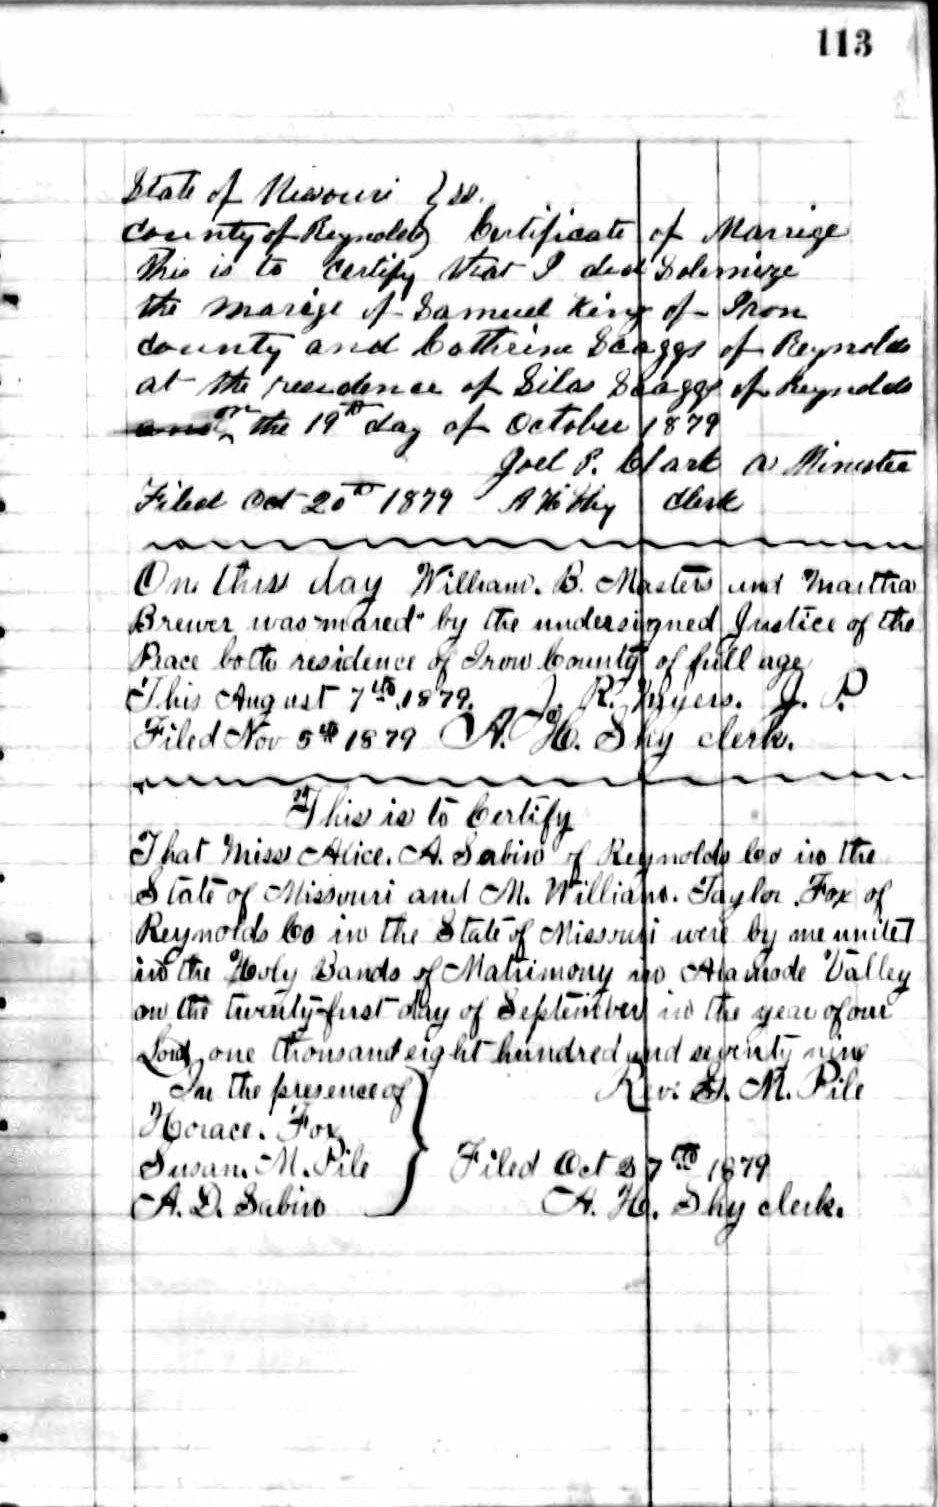 113
State of Missouri } ss.
County of Reynolds } Certificate of Marrige
This is to certify that I did Solemnize
the marige of Samuel King of Iron
county and Cathrine Scaggs of Reynolds
at the residence of Silas Scaggs of Reynolds
and on the 19th day of October 1879
Joel P. Clark a Minister
Filed Oct 20th 1879 A H Shy Clerk
On this day William. B. Masters and Martha
Brewer was "mared" by the undersigned Justice of the
Peace both residence of Iron County of full age
This August 7th 1879. J. R. Myers. J. P
Filed Nov 5th 1879 A. H. Shy clerk.
This is to Certify
That Miss Alice. A. Sabin of Reynolds Co in the
State of Missouri and M. William. Taylor Fox of
Reynolds Co in the State of Missouri were by me united
in the Holy Bands of Matrimony in Valley
on the twenty-first day of September in the year of our
Lord, one thousand eight hundred and seventy nine
In the presence of } Rev. M. Pile
Horace. Fox
Susan. M. Pile } Filed Oct 27th 1879
A. D. Sabin A. H. Shy clerk.